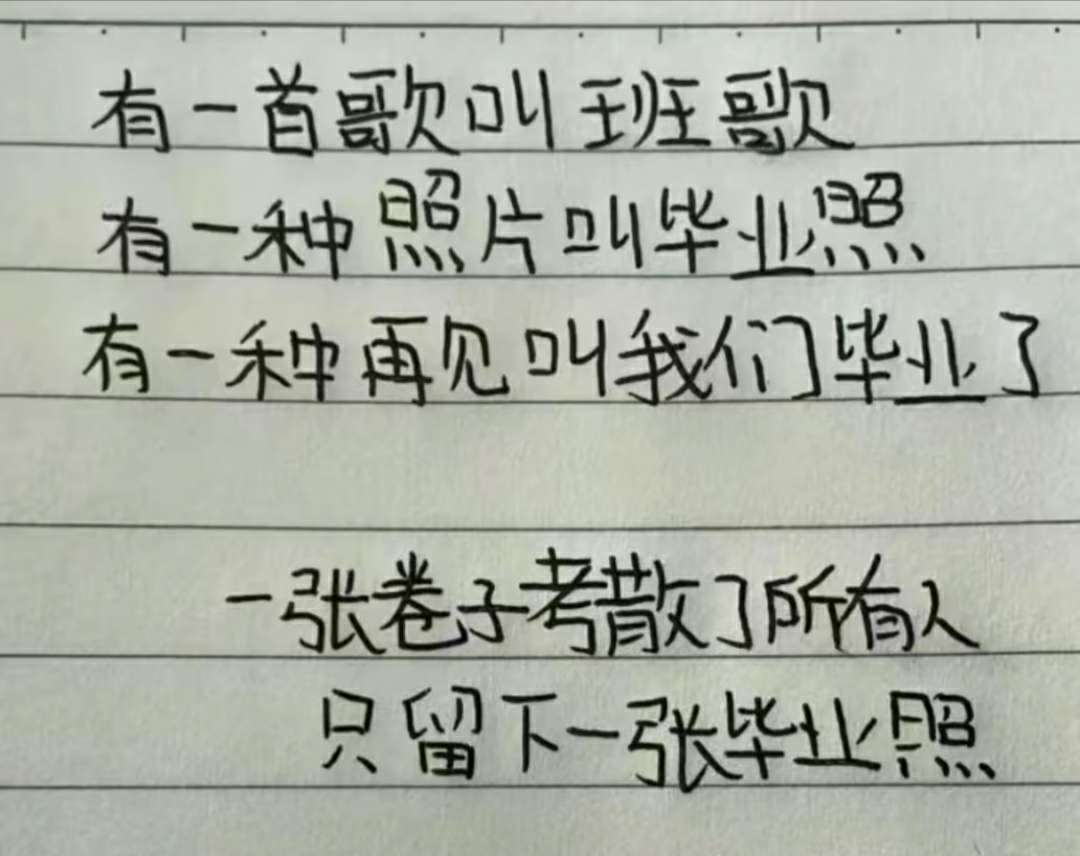 有一首歌叫班歌
有一种照片叫毕业照
有一种再见叫我们毕业了
一张卷子考散了所有人
只留下一张毕业照